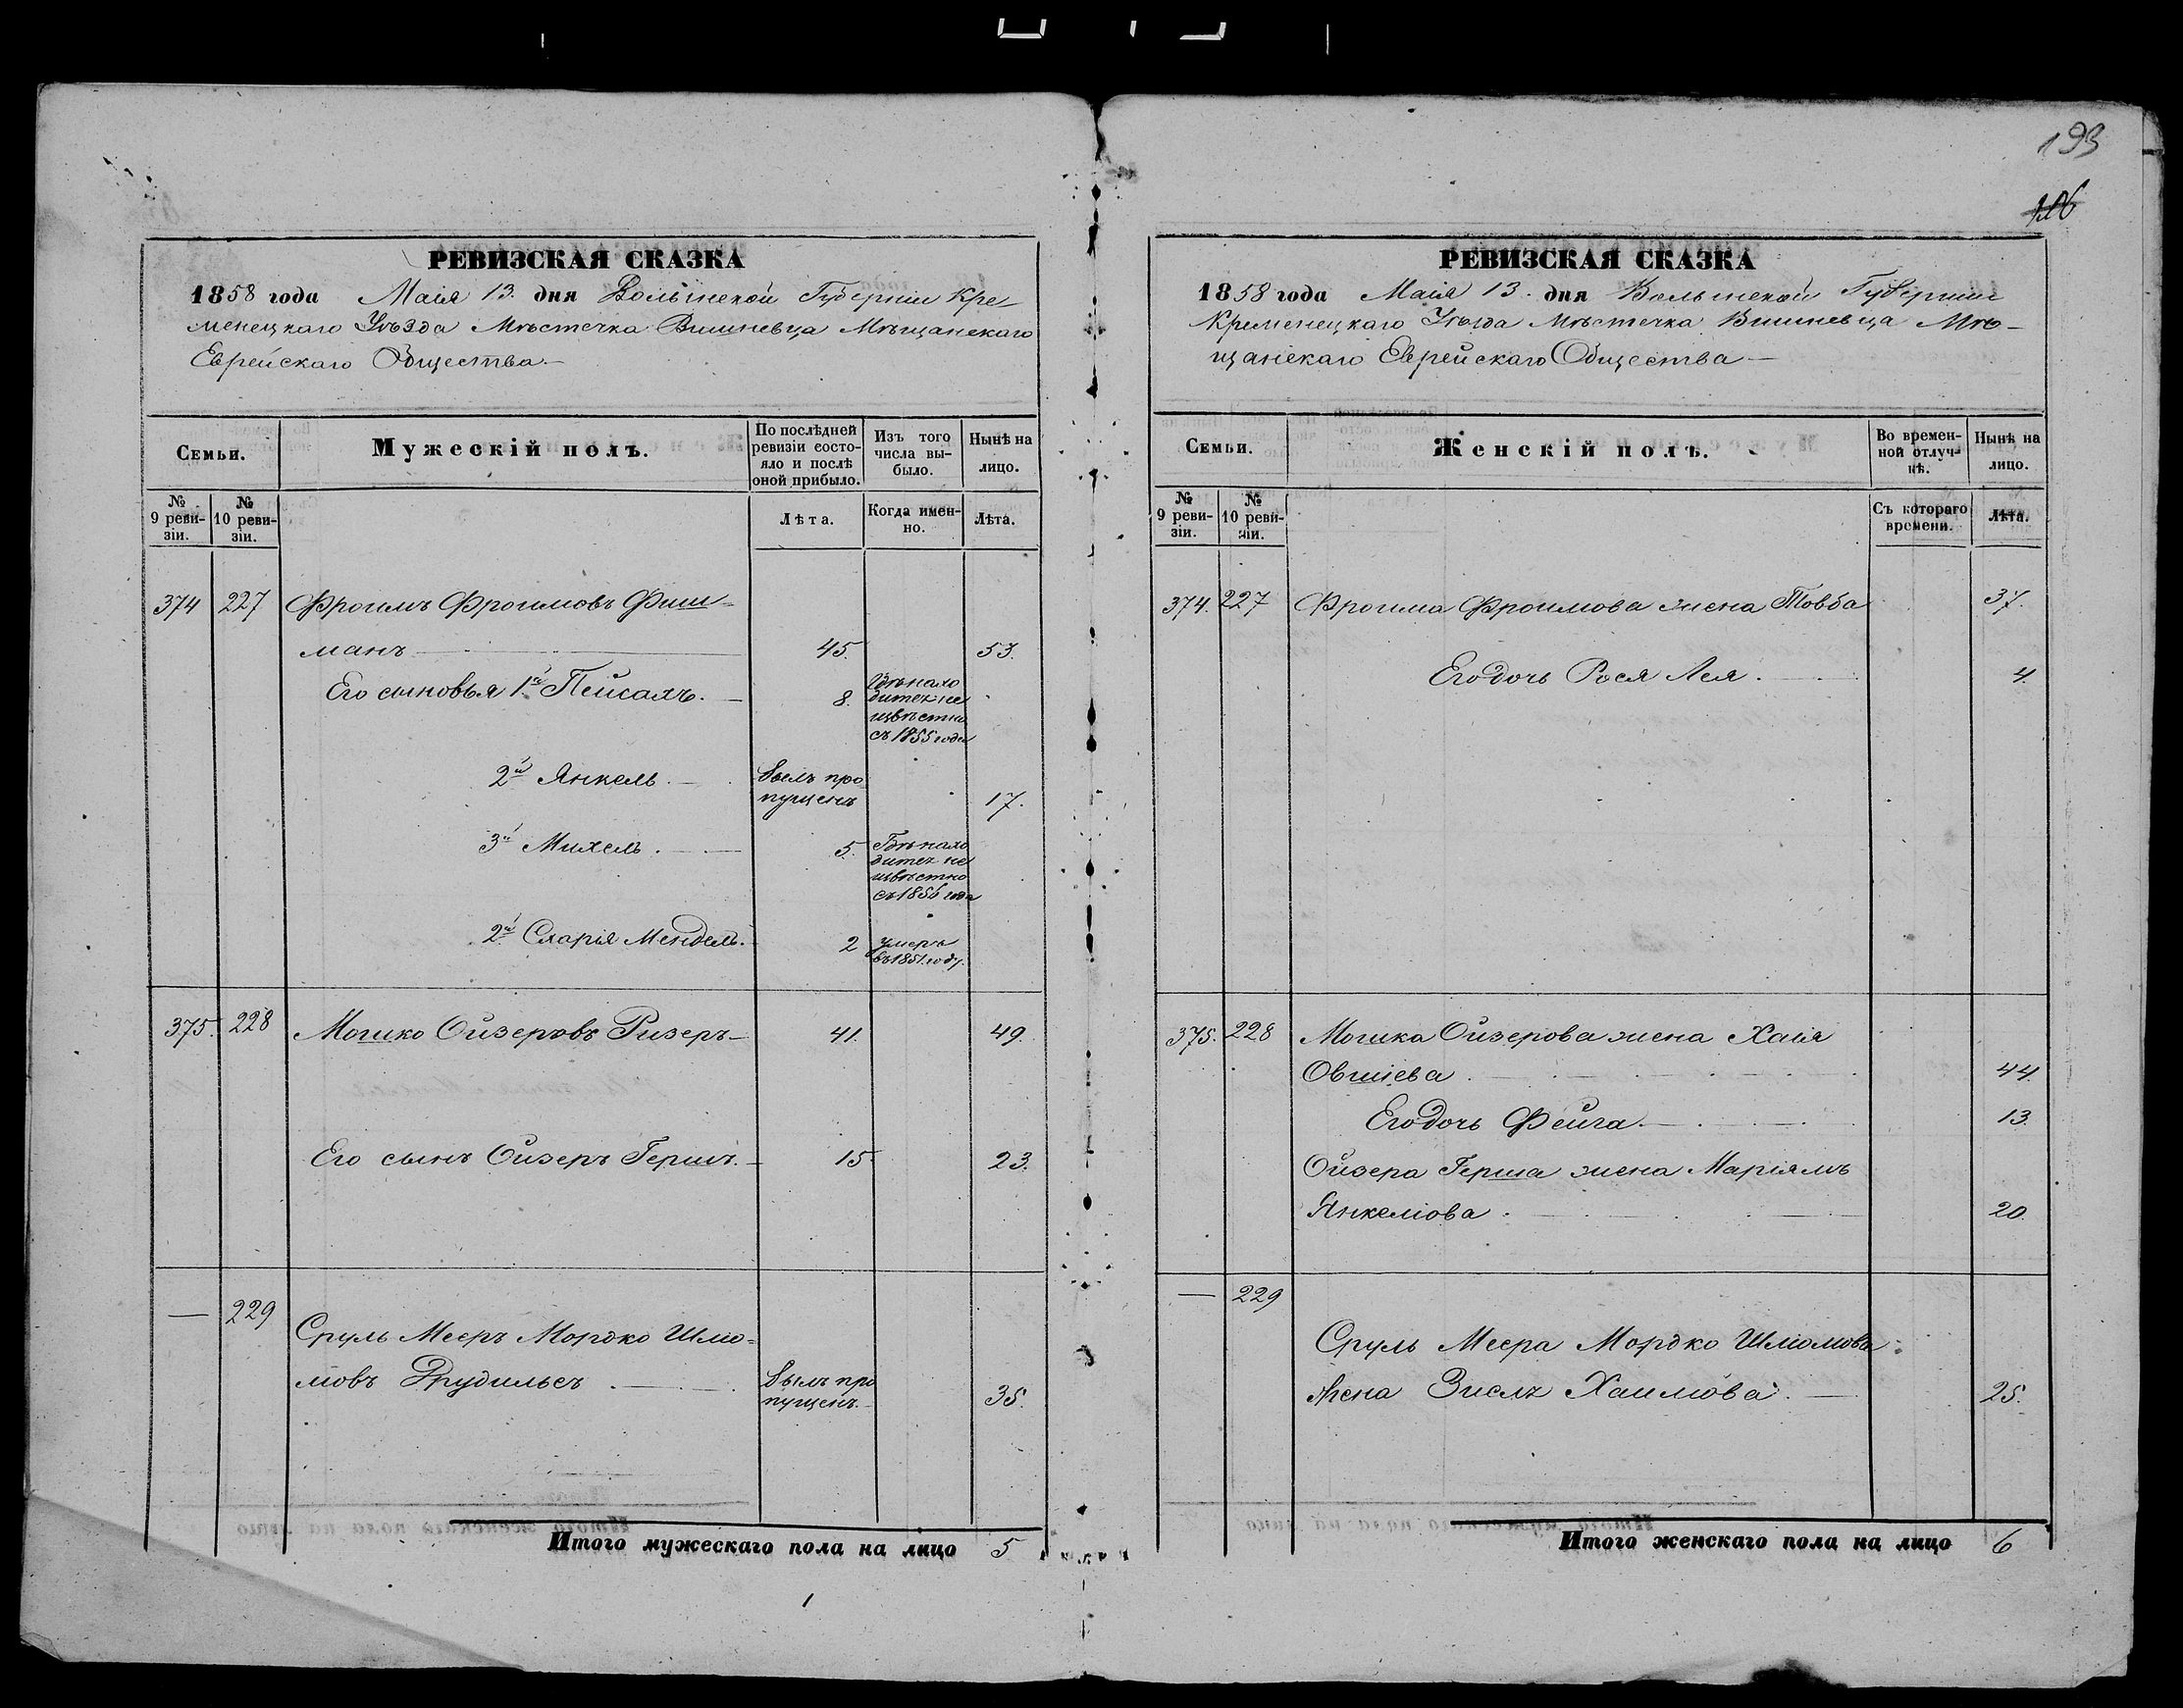 193
106
РЕВИЗСКАЯ СКАЗКА
1858 года Маія 13. дня Волынской Губерніи Кре-
менецкаго Уѣзда Мѣстечка Вишневца Мѣщанскаго
Еврейскаго Общества.—
Семьи.
Мужескій полъ.
По послѣдней
ревизіи состо-
яло и послѣ
оной прибыло.
Изъ того
числа вы-
было.
Нынѣ на
лицо.
№
9 реви-
зіи.
№
10 реви-
зіи.
Лѣта.
Когда имен-
но.
Лѣта.
374 227 Фроимъ Фроимовъ Фиш=
манъ 45. 53.
Его сыновья 1й Пейсахъ. 8. Гдѣ нахо
дитсѧ не
извѣстно
съ 1855 года
2й Янкель. былъ про
пущенъ 17.
3й Михель. 5. Гдѣ нахо
дитсѧ не
извѣстно
съ 1856 года
2й Схарія Мендель. 2 умеръ
въ 1851. году.
375. 228 Мошко Ойзеровъ Ризеръ— 41. 49.
Его сынъ Ойзеръ Гершъ.— 15. 23.
— 229
Сруль Меєръ Мордко Шлио=
мовъ былъ про
пущенъ.— 35.
Итого мужескаго пола на лицо 5
РЕВИЗСКАЯ СКАЗКА
1858 года Маія 13. дня Волынской Губерніи
Кременецкаго Уѣзда Мѣстечка Вишневца Мѣ-
щанскаго Еврейскаго Общества—
Семьи.
Женскій полъ.
Во времен-
ной отлуч-
кѣ.
Нынѣ на
лицо.
№
9 реви-
зіи.
№
10 реви-
зіи.
Съ котораго
времени.
Лѣта.
374. 227 Фроима Фроимова жена Товба 37.
Его дочь Рося Лея. 4.
375. 228 Мошка Ойзерова жена Хаія
Овшіева. 44.
Его дочь Фейга. 13.
Ойзера Герша жена Маріямъ
Янкеліова. 20.
— 229
Сруль Меера Мордко Шлиомова
жена Зислъ Хаимова. 25.
Итого женскаго пола на лицо 6